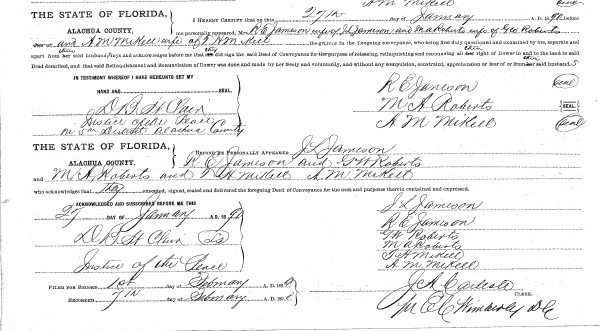 A M Mikell
THE STATE OF FLORIDA,
ALACHUA COUNTY.
I HEREBY CERTIFY that on this 27th day of January A. D. 1890 before
me personally appeared, Mrs R E Jameson wife of J L Jameson and M A Roberts wife of Geo Roberts
and A M Mikell wife of T H Mikell the grantor in the foregoing conveyance, who being first duly questioned and examined by me, separate and
apart from her said husband
said Deed of Conveyance for the purpose of releasing, relinquishing and renouncing all her right of Dower in and to the land in said
Deed described, and that said Relinquishment and Renunciation of Dower was done and made by her freely and voluntarily, and without any compulsion, constraint, apprehension or fear of or from her said husbands
IN TESTIMONY WHEREOF I HAVE HEREUNTO SET MY
HAND AND SEAL,
R E Jameson (Seal)
D B St Clair
M A Roberts {SEAL.}
Justice of the Peace
A M Mikell (Seal)
District Alachua County
THE STATE OF FLORIDA,
ALACHUA COUNTY.
BEFORE ME PERSONALLY APPEARED J L Jameson
R E Jameson and G W Roberts
and M A Roberts and T H Mikell A M Mikell
who acknowledge that They executed, signed, sealed and delivered the foregoing Deed of Conveyance for the uses and purposes therein contained and expressed.
ACKNOWLEDGED AND SUBSCRIBED BEFORE ME THIS
27 DAY OF January A. D. 1890
J L Jameson
R E Jameson
D B St Clair
G W Roberts
M A Roberts
T H Mikell
Justice of the Peace
A M Mikell
FILED FOR RECORD 1st day of February A. D. 1890
J A Carlisle CLERK.
RECORDED 7th day of February A. D. 1890
Per E C Wimberly D C